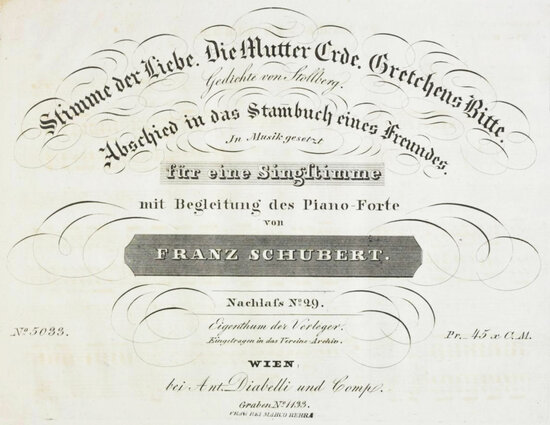 Stimme der Liebe. Die Mutter Erde. Gretchens Bitte.
Gedichte von Stollberg.
Abschied in das Stam̄buch eines Freundes.
In Musik gesetzt
für eine Singstimme
mit Begleitung des Piano-Forte
von
FRANZ SCHUBERT.
Nachlaſs No. 29.
No. 5033.
Eigenthum der Verleger.
Pr. 45 x C.M.
Eingetragen in das Vereins-Archiv.
WIEN,
bei Ant. Diabelli und Comp.
Graben No. 1133.
PRAG BEI MARCO BERRA